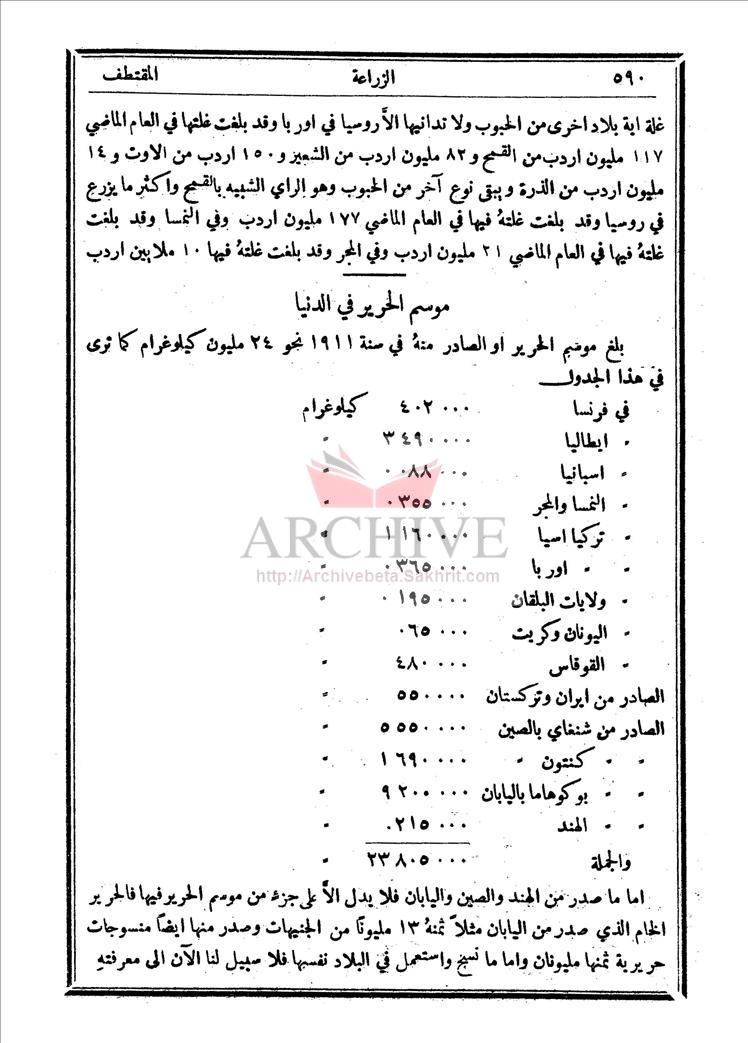 ٥٩٠ الزراعة المقتطف
غلة اية بلاد اخرى من الحبوب ولا تدانيها الاَّ روسيا في اور با وقد بلغت غلتها في العام الماضي
١١٧ مليون اردب من القمح و ٨٢ مليون اردب من الشعير و ١٥٠ اردب من الاوت و ١٤
مليون اردب من الذرة و يبقى نوع آخر من الحبوب وهو الراي الشبيه بالقمح واكثر ما يزرع
في روسيا وقد بلغت غلتهُ فيها في العام الماضي ١٧٧ مليون اردب وفي النمسا وقد بلغت
غلتهُ فيها في العام الماضي ٢١ مليون اردب وفي المجر وقد بلغت غلتهُ فيها ١٠ ملايين اردب
موسم الحرير في الدنيا
بلغ موسم الحرير او الصادر منهُ في سنة ١٩١١ نحو ٢٤ مليون كيلوغرام كما ترى
في هذا الجدول
في فرنسا ٤٠٢٠٠٠ كيلوغرام
" ايطاليا ٣٤٩٠٠٠٠ "
" اسبانيا ٠٠٨٨٠٠٠
" النمسا والمجر ٠٣٥٥٠٠٠ "
" تركيا اسيا ١١٦٠٠٠٠ "
" " اور با ٠٣٦٥٠٠٠
" ولايات البلقان ٠١٩٥٠٠٠ "
" اليونان وكريت ٠٦٥٠٠٠ "
" القوقاس ٤٨٠٠٠٠ "
الصادر من ايران وتركستان ٥٥٠٠٠٠ "
الصادر من شنغاي بالصين ٥٥٥٠٠٠٠ "
" " كنتون " ١٦٩٠٠٠٠ "
" " يوكوهاما باليابان ٩٢٠٠٠٠٠ "
" " الهند ٠٢١٥٠٠٠ "
والجملة ٢٣٨٠٥٠٠٠ "
اما ما صدر من الهند والصين واليابان فلا يدل الاَّ على جزء من موسم الحرير فيها فالحرير
الخام الذي صدر من اليابان مثلاً ثمنهُ ١٣ مليونًا من الجنيهات وصدر منها ايضًا منسوجات
حريرية ثمنها مليونان واما ما نسج واستعمل في البلاد نفسها فلا سبيل لنا الآن الى معرفتهِ
ARCHIVE
http://Archivebeta.Sakhrit.com